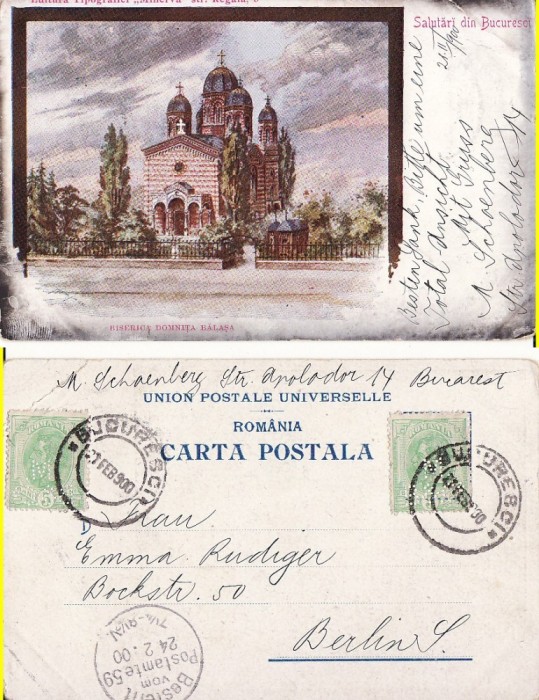 Editura Tipografiei „Minerva" str. Regală, 6
Salutări din Bucuresci
21 II/900
Besten Dank, Bitte um eine
Total Ansicht.
Mit Gruss
M Schoenberg
Str Apolodor 14
BISERICA DOMNIȚA BĂLAȘA
M. Schoenberg Str. Apolodor 14 Bucarest
UNION POSTALE UNIVERSELLE
ROMÂNIA
CARTA POSTALA
ROMANIA
5
BUCURESCI
FEB 900
ROMANIA
BUCURESCI
FEB 900
D
Frau
Emma Rudiger
Bockstr. 50
Berlin S.
Bestellt
vom
Postamte 59
24 2. 00